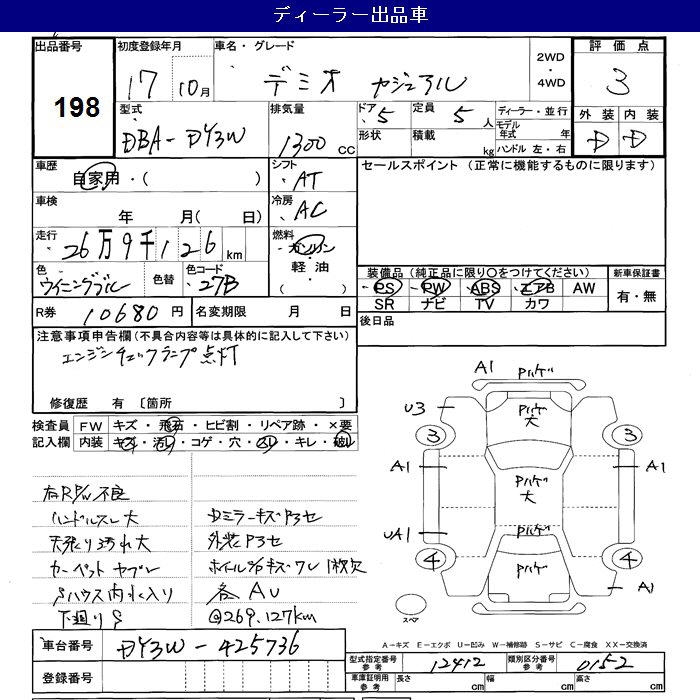 ディーラー出品車
出品番号 198
初度登録年月 17年 10月
車名・グレード デミオ カジュアル
2WD ・ 4WD
評価点 3
外装 D 内装 D
型式 DBA-DY3W
排気量 1300 CC
ドア 5
形状
定員 5人
積載 kg
ディーラー・並行
モデル年式 年
ハンドル 左・右
車歴 自家用・( )
シフト AT
セールスポイント (正常に機能するものに限ります)
車検 年 月( 日)
冷房 AC
走行 26万9千126km
燃料 ガソリン・軽油・( )
色 ウイニングブルー
色替
色コード 27B
装備品(純正品に限り○をつけてください)
PS PW ABS エアB AW
SR ナビ TV カワ
新車保証書 有・無
R券 10680円
名変期限 月 日
後日品
注意事項申告欄(不具合内容等は具体的に記入して下さい)
エンジンチェックランプ点灯
修復歴 有 〔箇所 〕
検査員記入欄
FW キズ・飛石・ヒビ割・リペア跡・×要
内装 キズ・汚レ・コゲ・穴・スレ・キレ・破レ
右RP/W不良
ハンドルスレ大
天張り汚れ大
カーペットヤブレ
Sハウス内水入り
下廻りS
Dミラーキズ P3セ
外装P3セ
ホイル%キズワレ 1枚欠
各AU
@269.127km
A1 Pハゲ
U3 Pハゲ 大
3 3
A1 Pハゲ 大 A1
UA1 Pハゲ
4 Pハゲ 4
A1
スペア
A-キズ E-エクボ U-凹み W-補修跡 S-サビ C-腐食 XX-交換済
車台番号 DY3W-425736
登録番号
型式指定番号 参考 12412
類別区分番号 参考 0152
車庫証明用 参考 長さ cm 幅 cm 高さ cm